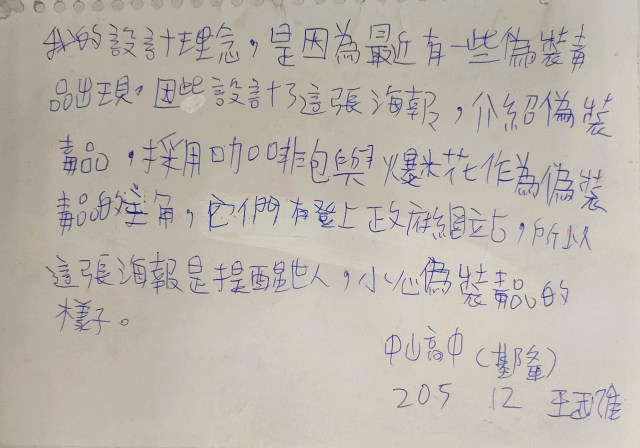 我的設計理念，是因為最近有一些偽裝毒
品出現，因些設計了這張海報，介紹偽裝
毒品，採用咖啡包與爆米花作為偽裝
毒品的主角，它們有登上政府網站，所以
這張海報是提醒世人，小心偽裝毒品的
樣子。
中山高中(基隆)
205 12 王玨雅